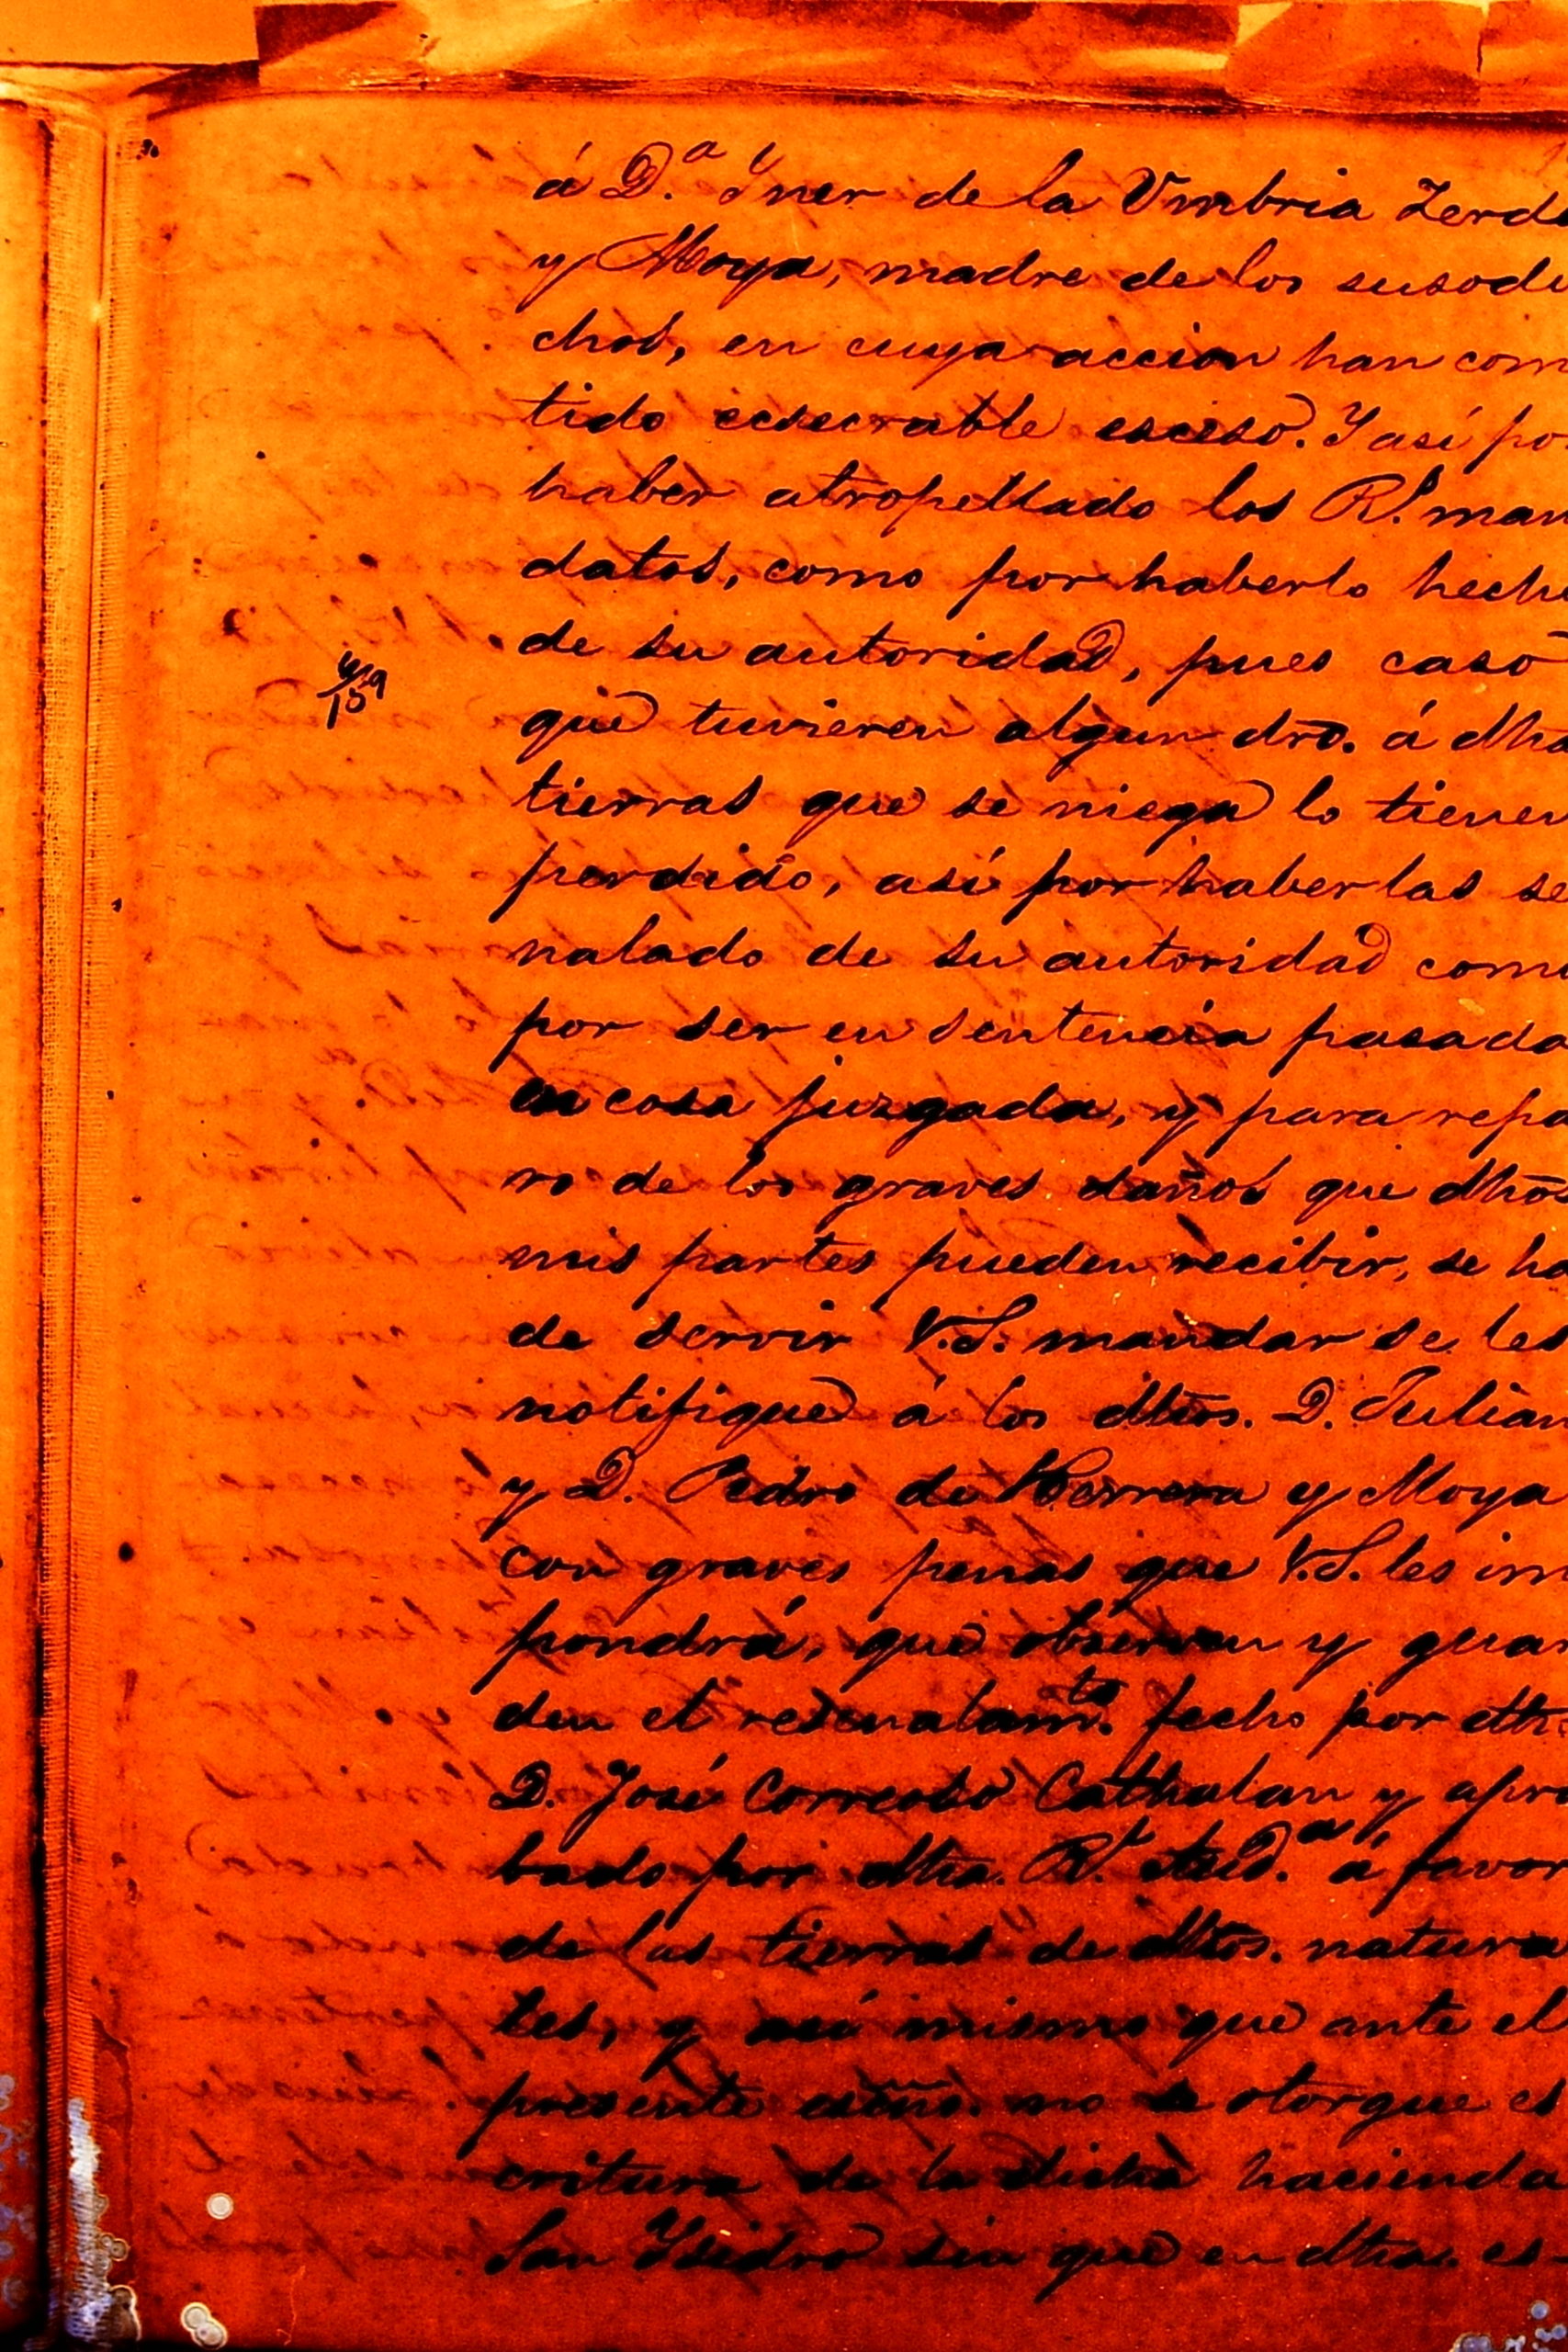 á D.ª Ynes de la Umbria Zerd
y Moya, madre de los susodi
chos, en cuya accion han com
tido ecsecrable esceso. Y así po
haber atropellado los R.s man
datos, como por haberlo hech
de su autoridad, pues caso
que tuvieren algun dro. á dha
tierras que se niega lo tienen
perdido, así por haberlas se
nalado de su autoridad com
por ser en sentencia pasada
en cosa juzgada, y para repa
ro de los graves daños que dhos
mis partes pueden recibir, se ha
de servir V.S. mandar se les
notifique á los dhos. D. Julian
y D. Pedro de Herrera y Moya
con graves penas que V.S. les im
pondrá, que observen y guar
den el fecho por dh
D. José Cathalan y apro
bado por dha. R.l Aud.ª á favor
de las tierras de dhos. natura
les, y así mismo que ante el
presente esno. no se otorgue es
critura de la dicha hacienda
San Ysidro sin que en dha. es-
4/159